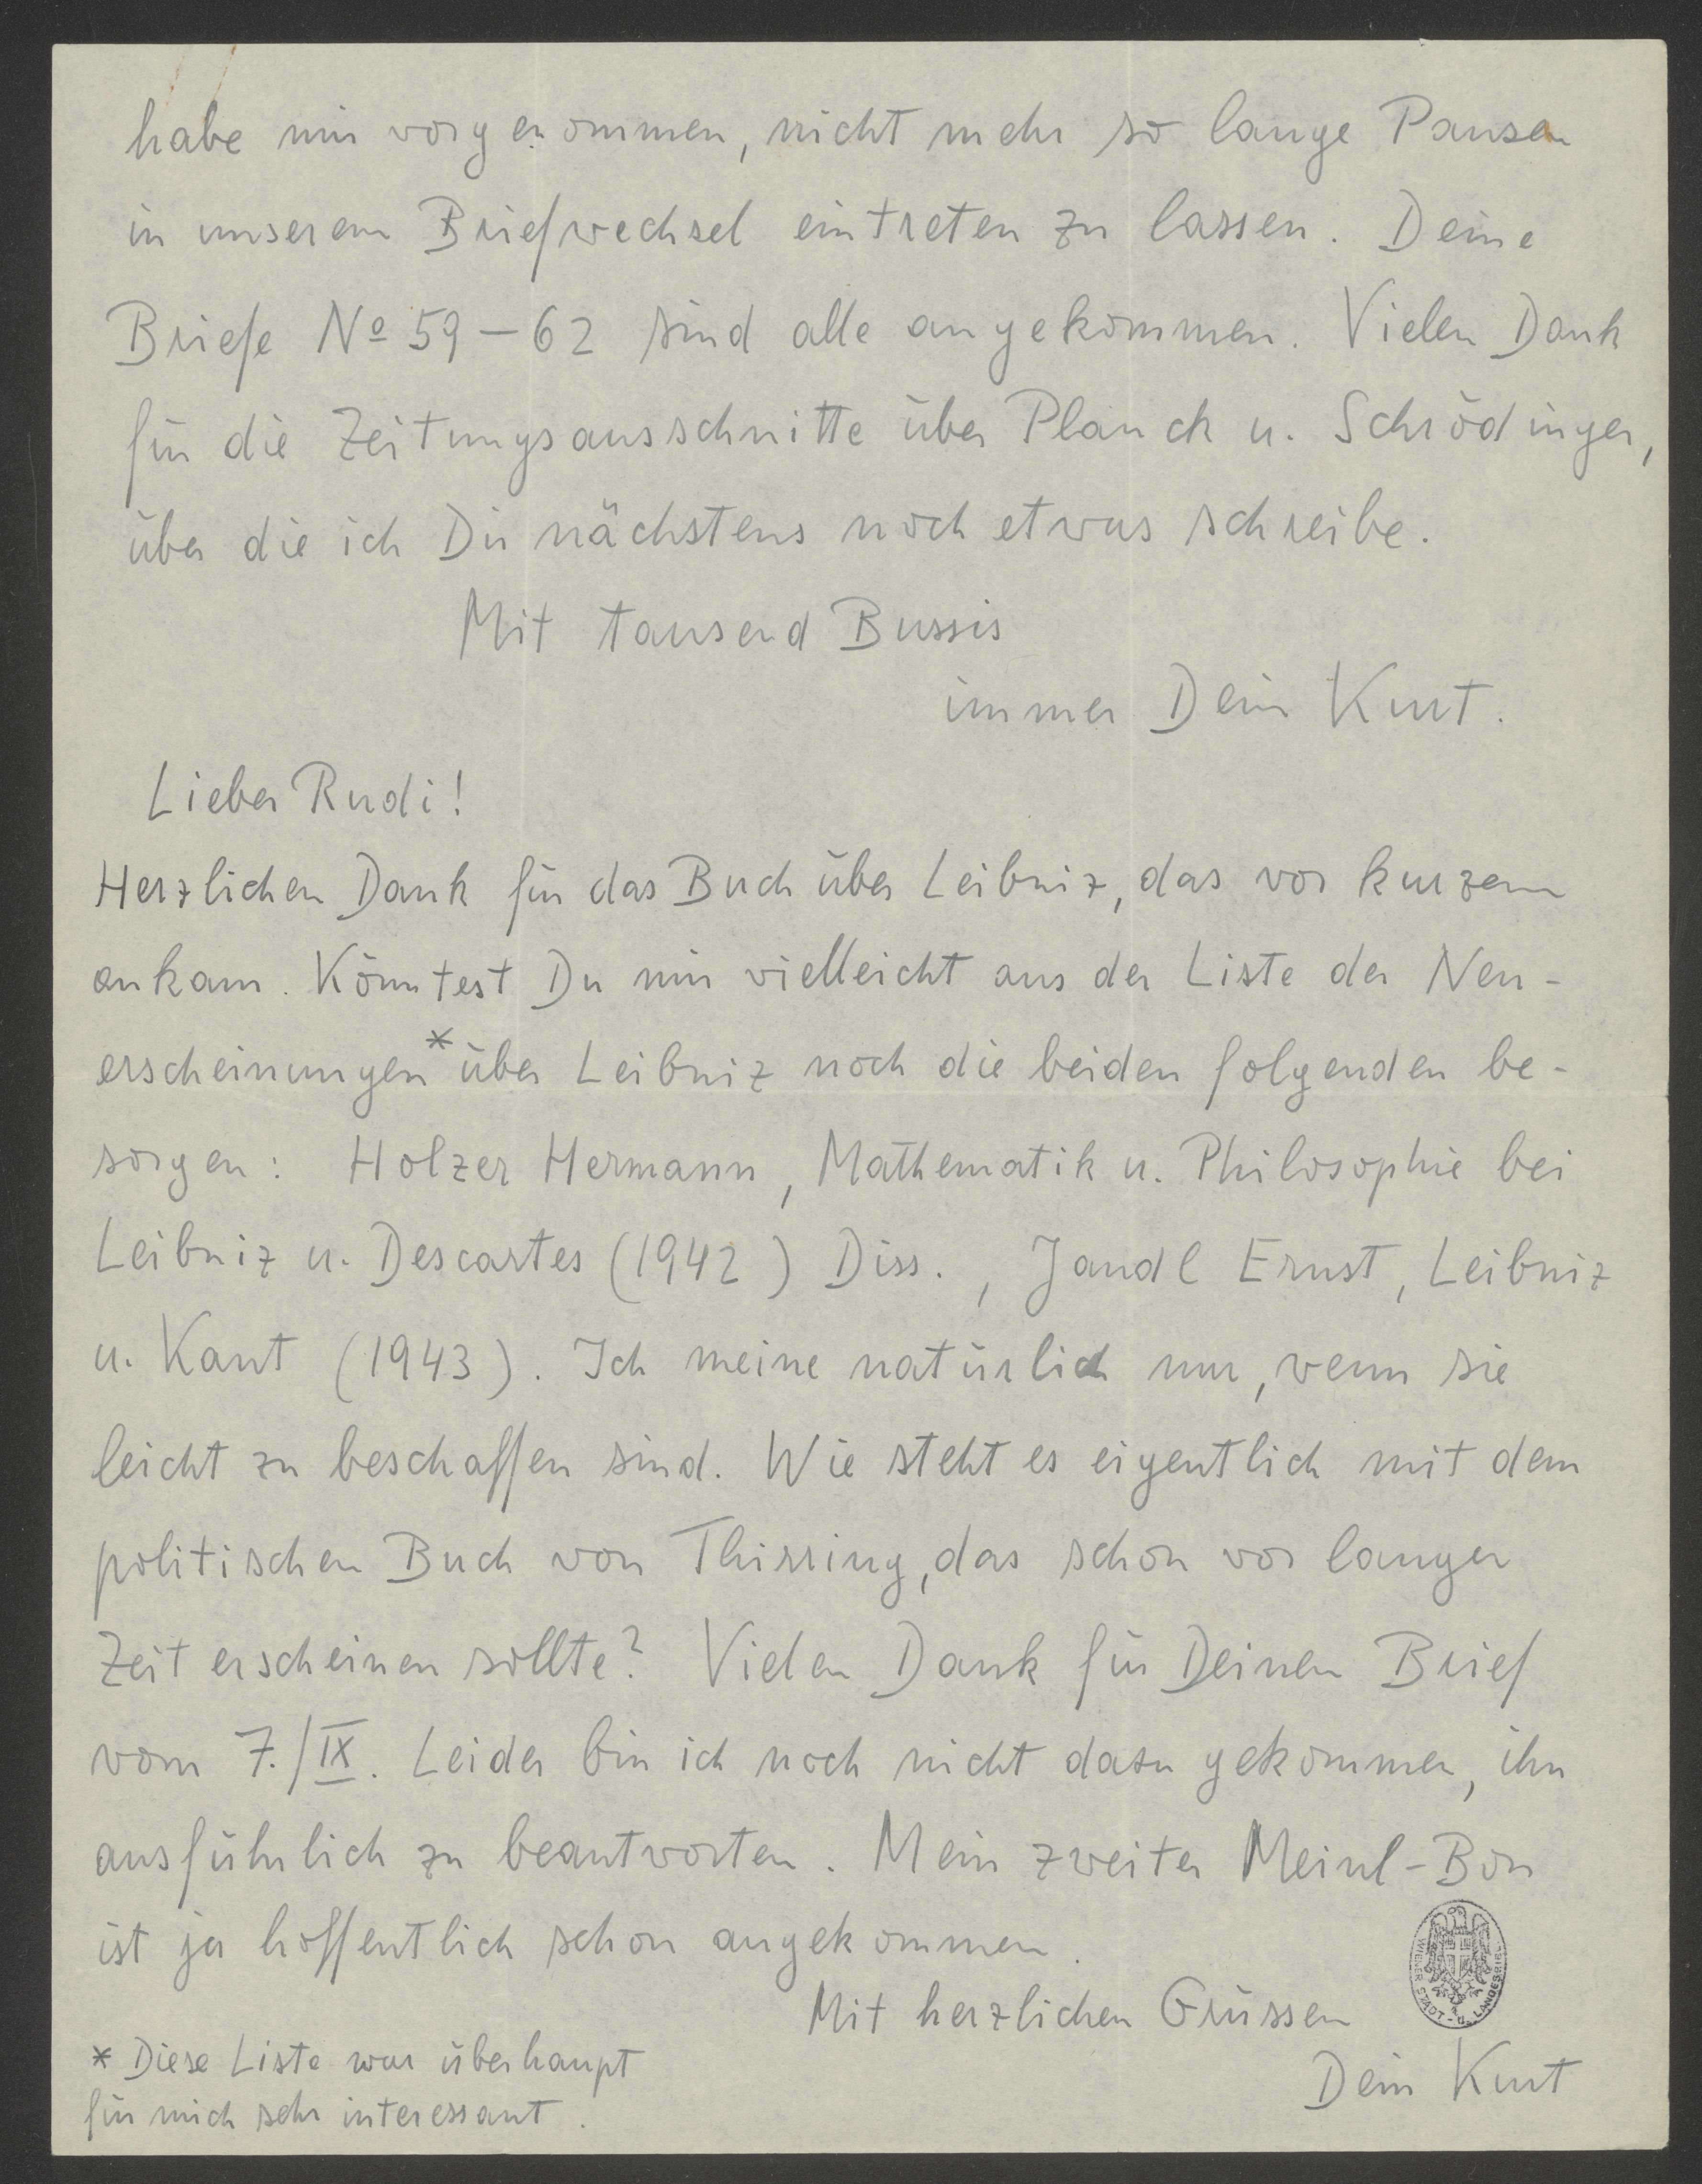 habe mir vorgenommen, nicht mehr so lange Pausen
in unserem Briefwechsel eintreten zu lassen. Deine
Briefe Nº 59 – 62 sind alle angekommen. Vielen Dank
für die Zeitungsausschnitte über Planck u. Schrödinger,
über die ich Dir nächstens noch etwas schreibe.
Mit tausend Bussis
immer Dein Kurt.
Lieber Rudi!
Herzlichen Dank für das Buch über Leibniz, das vor kurzem
ankam. Könntest Du mir vielleicht aus der Liste der Neu-
erscheinungen* über Leibniz noch die beiden folgenden be-
sorgen: Holzer Hermann, Mathematik u. Philosophie bei
Leibniz u. Descartes (1942) Diss., Jandl Ernst, Leibniz
u. Kant (1943). Ich meine natürlich nur, wenn sie
leicht zu beschaffen sind. Wie steht es eigentlich mit dem
politischen Buch von Thirring, das schon vor langer
Zeit erscheinen sollte? Vielen Dank für Deinen Brief
vom 7./IX. Leider bin ich noch nicht dazu gekommen, ihn
ausführlich zu beantworten. Mein zweiter Meinl-Bon
ist ja hoffentlich schon angekommen.
Mit herzlichen Grüssen
Dein Kurt
* Diese Liste war überhaupt
für mich sehr interessant.
WIENER STADT- u. LANDESBIBL.